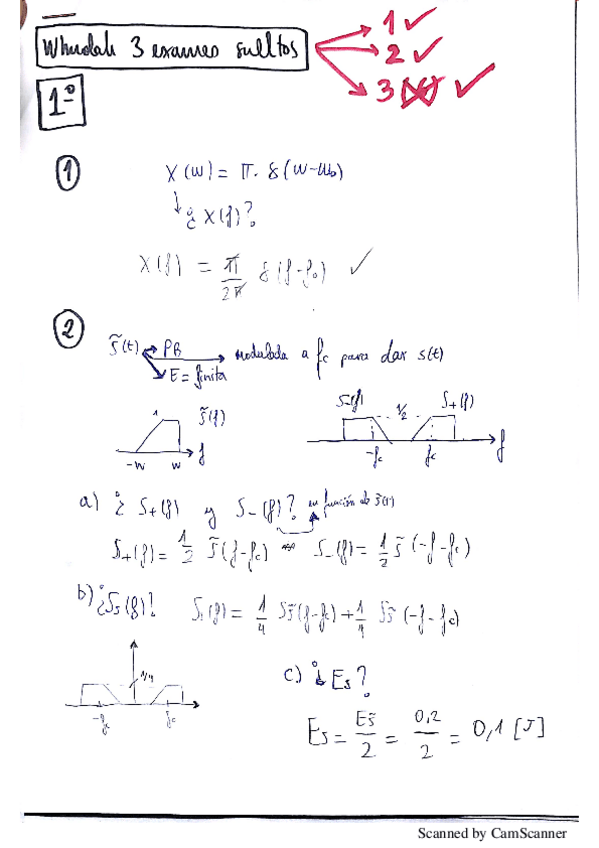 Whuolah 3 examenes sueltos
1 ✓
2 ✓
3 ✓
1º
①
X(w) = π · δ(w-w₀)
↓ ¿X(f)?
X(f) = π/2π δ(f-f₀) ✓
②
s̃(t) → PB → modulada a fc para dar s(t)
E = finita
1 s̃(f)
-W W f
S-(f) 1/2 S+(f)
-fc fc f
a) ¿S+(f) y S-(f)? en función de s̃(f)
S+(f) = 1/2 s̃(f-fc) S-(f) = 1/2 s̃(-f-fc)
b) ¿Ss(f)? Ss(f) = 1/4 Ss̃(f-fc) + 1/4 Ss̃(-f-fc)
1/4
-fc fc
c) ¿Es?
Es = Es̃/2 = 0,2/2 = 0,1 [J]
Scanned by CamScanner